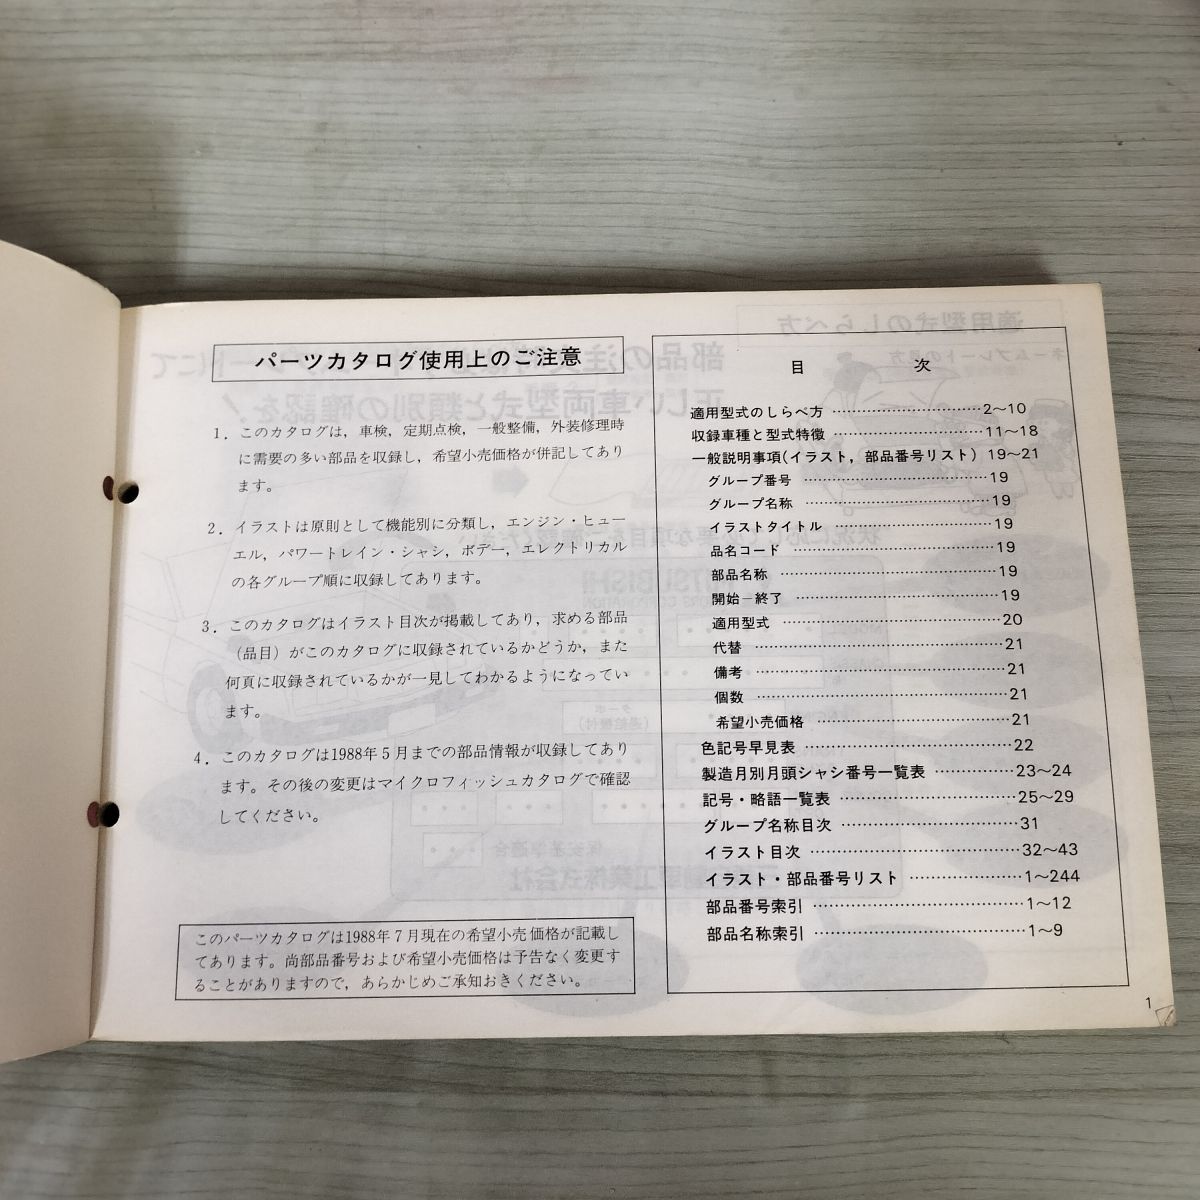 パーツカタログ使用上のご注意
1．このカタログは，車検，定期点検，一般整備，外装修理時
に需要の多い部品を収録し，希望小売価格が併記してあり
ます。
2．イラストは原則として機能別に分類し，エンジン・ヒュー
エル，パワートレイン・シャシ，ボデー，エレクトリカル
の各グループ順に収録してあります。
3．このカタログはイラスト目次が掲載してあり，求める部品
（品目）がこのカタログに収録されているかどうか，また
何頁に収録されているかが一見してわかるようになってい
ます。
4．このカタログは1988年5月までの部品情報が収録してあり
ます。その後の変更はマイクロフィッシュカタログで確認
してください。
このパーツカタログは1988年7月現在の希望小売価格が記載し
てあります。尚部品番号および希望小売価格は予告なく変更す
ることがありますので，あらかじめご承知おきください。
目 次
適用型式のしらべ方 ……………… 2～10
収録車種と型式特徴 ……………… 11～18
一般説明事項(イラスト，部品番号リスト) 19～21
グループ番号 ……………… 19
グループ名称 ……………… 19
イラストタイトル ……………… 19
品名コード ……………… 19
部品名称 ……………… 19
開始－終了 ……………… 19
適用型式 ……………… 20
代替 ……………… 21
備考 ……………… 21
個数 ……………… 21
希望小売価格 ……………… 21
色記号早見表 ……………… 22
製造月別月頭シャシ番号一覧表 ……………… 23～24
記号・略語一覧表 ……………… 25～29
グループ名称目次 ……………… 31
イラスト目次 ……………… 32～43
イラスト・部品番号リスト ……………… 1～244
部品番号索引 ……………… 1～12
部品名称索引 ……………… 1～9
1